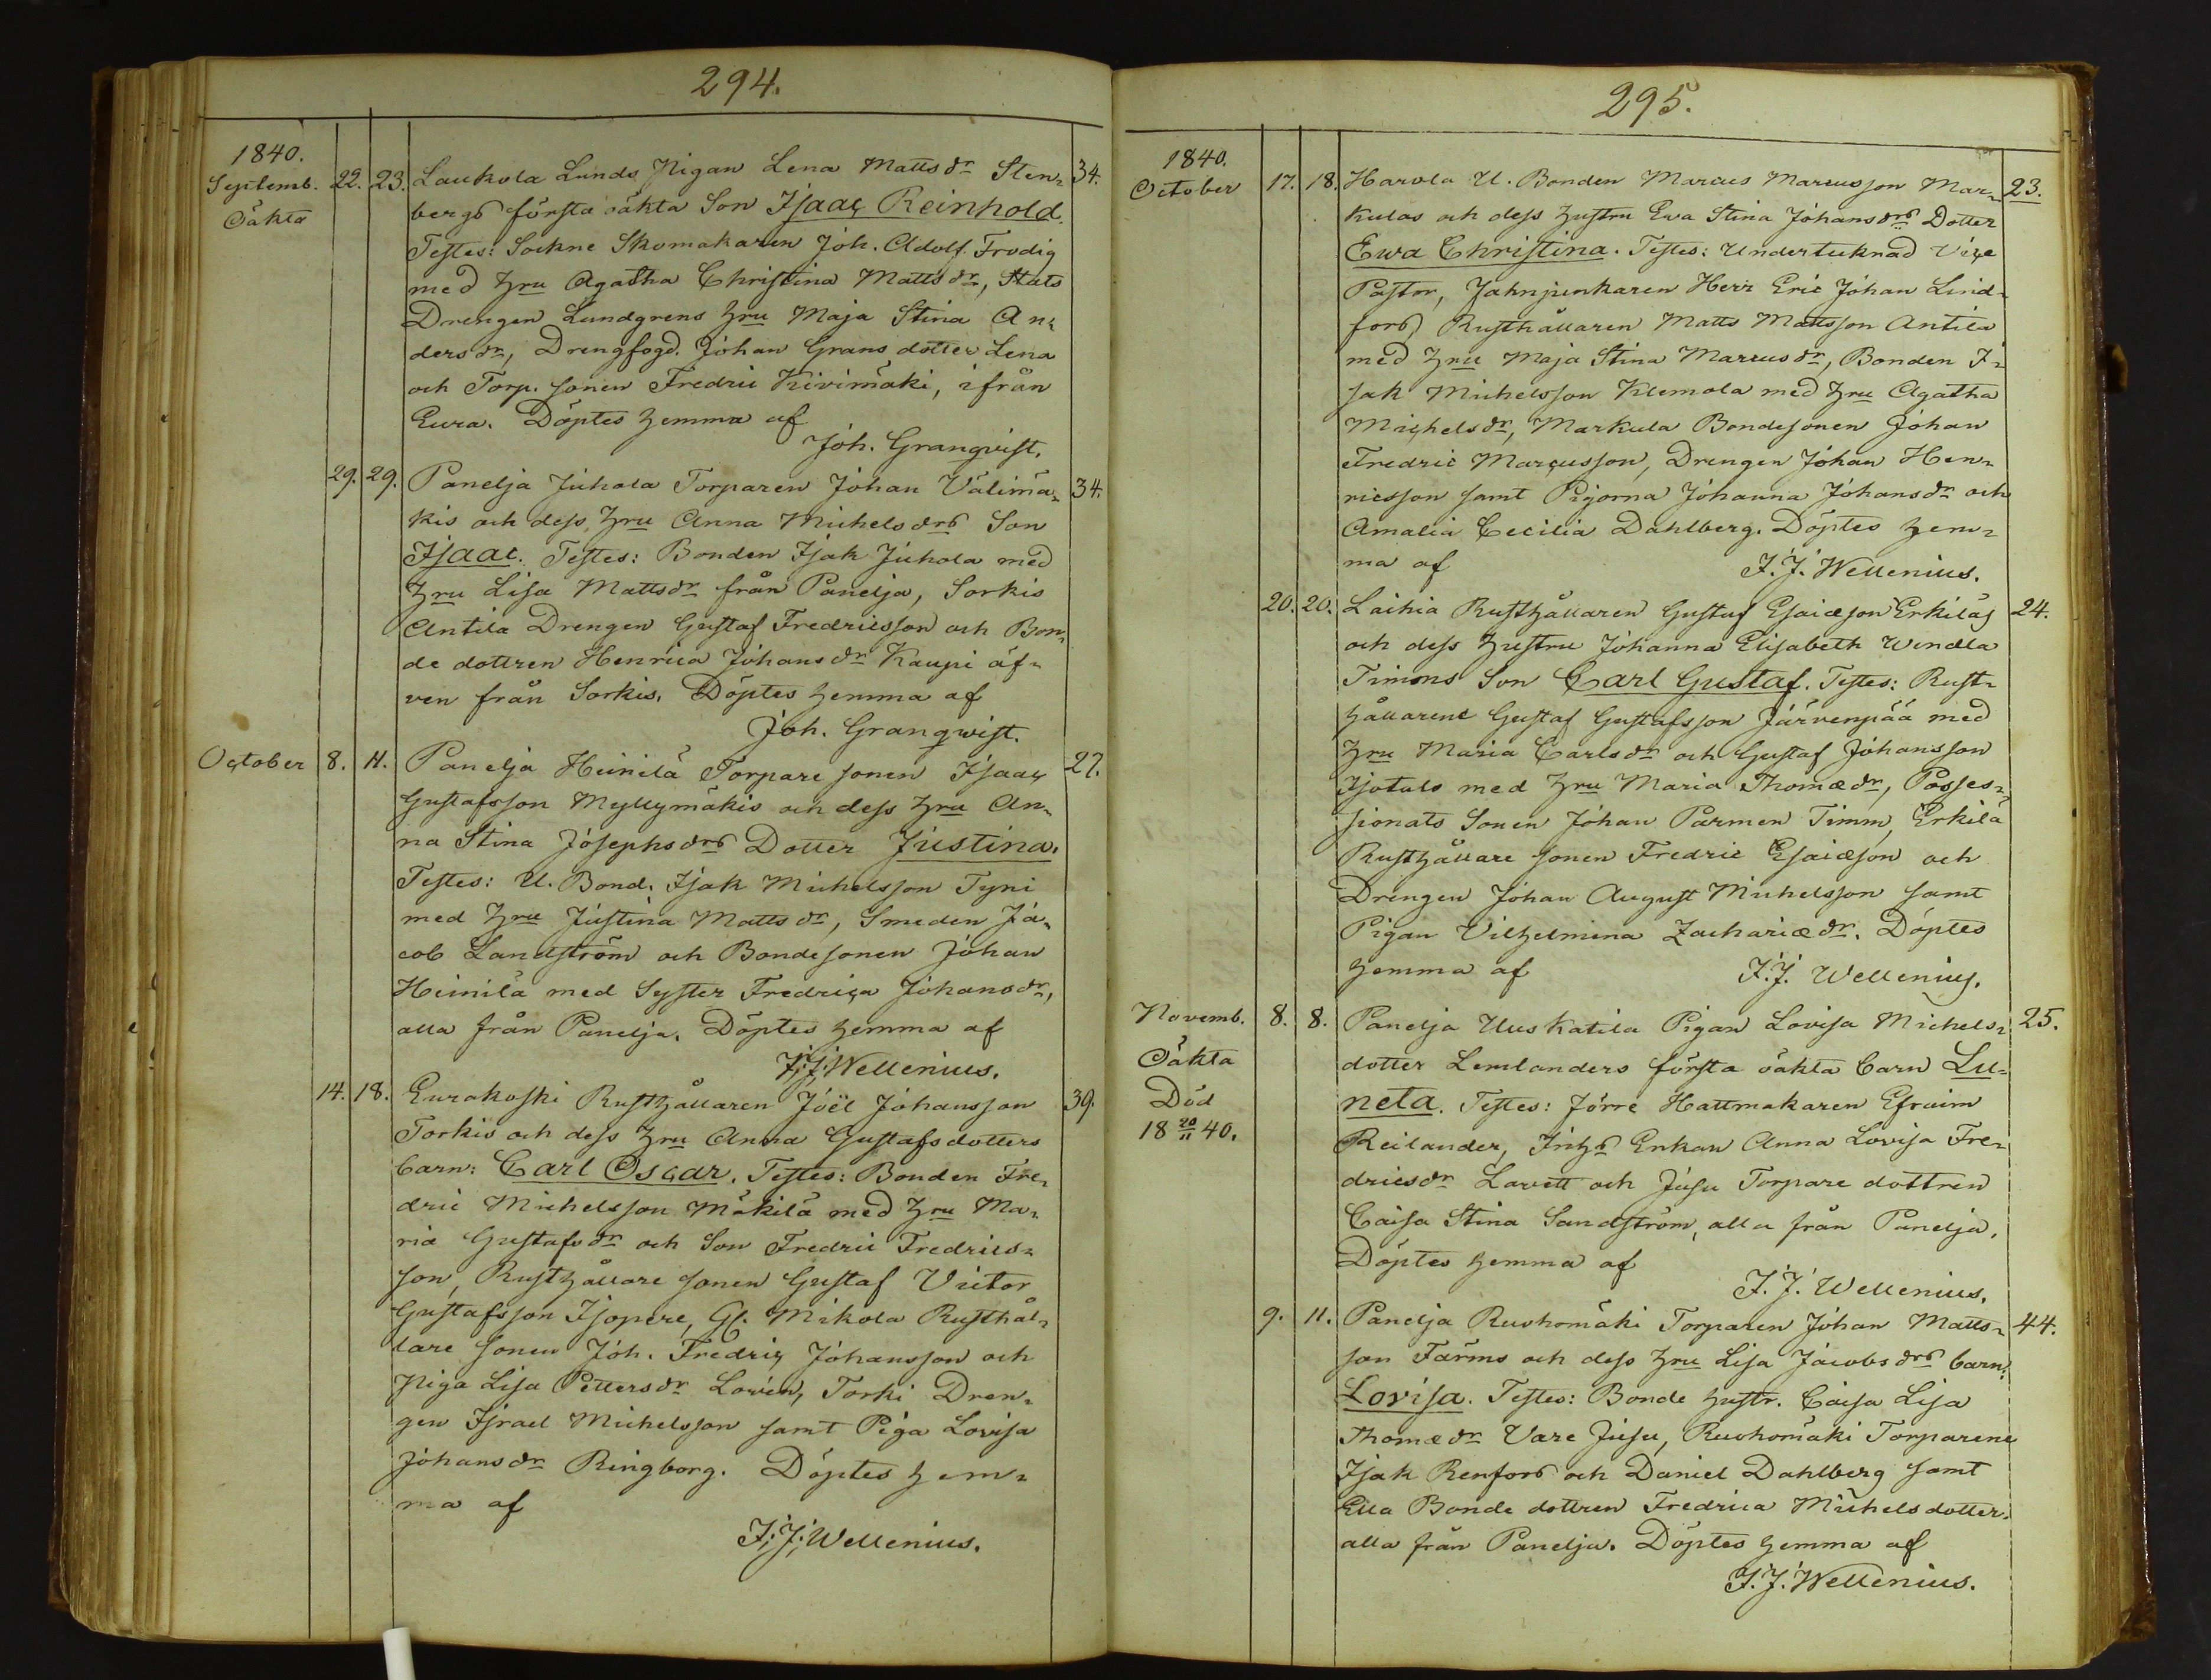 294.
1840.
Septemb. 22. 23. Laukola Lunds Pigan Lena Mattsdr Sten- 34.
Oäkta
bergs första oäkta Son Isaac Reinhold.
Testes: Sockne Skomakaren Joh. Adolf Frodig
med Hru Agatha Christina Mattsdr, Stats
Drengen Lundgrens Hru Maja Stina An-
dersdr, Drengfogd. Johan Grans dotter Lena
och Torp. sonen Fredric Kivimäki, ifrån
Eura. Döptes hemma af
Joh. Granqvist.
29. 29. Panelja Juhola Torparen Johan Välimä- 34.
kis och dess Hru Anna Michelsdrs Son
Isaac. Testes: Bonden Isak Juhola med
Hru Lisa Mattsdr från Panelja, Sorkis
Antila Drengen Gustaf Fredricsson och Bon-
de dottren Henrica Johansdr Kaupi äf-
ven från Sorkis. Döptes hemma af
Joh. Granqwist.
October 8. 11. Panelja Heinilä Torpare sonen Isaac 27.
Gustafsson Myllymäkis och dess Hru An-
na Stina Josephsdrs Dotter Justina.
Testes: U. Bond. Isak Michelsson Tyni
med Hru Justina Mattsdr, Smeden Ja-
cob Landström och Bondesonen Johan
Heinilä med Syster Fredrica Johansdr,
alla från Panelja. Döptes hemma af
J. J. Wellenius.
14. 18. Eurakoski Rusthållaren Joël Johansson 39.
Torkis och dess Hru Anna Gustafsdotters
barn: Carl Oscar. Testes: Bonden Fre-
dric Michelsson Mäkilä med Hru Ma-
ria Gustafsdr och Son Fredric Fredrics-
son, Rusthållare sonen Gustaf Victor
Gustafsson Isopere, Gl. Mikola Rusthål-
lare sonen Joh. Fredric Johansson och
Piga Lisa Pettersdr Lovén, Torki Dren-
gen Israel Michelsson samt Piga Lovisa
Johansdr Ringborg. Döptes hem-
ma af
J. J. Wellenius.
295.
1840.
October 17. 18. Harola U. Bonden Marcus Marcusson Mar- 23.
kulas och dess hustru Ewa Stina Johansdrs Dotter
Ewa Christina. Testes: Undertecknad Vice
Pastor, Jahnjunkaren Herr Eric Johan Lind-
fors, Rusthållaren Matts Mattsson Antila
med Hru Maja Stina Marcusdr, Bonden I-
sak Michelsson Klemola med Hru Agatha
Michelsdr, Markula Bondesonen Johan
Fredric Marcusson, Drengen Johan Hen-
ricsson samt Pigorna Johanna Johansdr och
Amalia Cecilia Dahlberg. Döptes hem-
ma af J. J. Wellenius.
20. 20. Laihia Rusthållaren Gustaf Esaiæson Erkiläs 24.
och dess hustru Johanna Elisabeth Wendla
Timms Son Carl Gustaf. Testes: Rust-
hållarene Gustaf Gustafsson Järvenpää med
Hru Maria Carlsdr och Gustaf Johansson
Isotalo med Hru Maria Thomædr, Posses-
sionats Sonen Johan Parmen Timm, Erkilä
Rusthållare sonen Fredric Esaiæson och
Drengen Johan August Michelsson samt
Pigan Vilhelmina Zachariædr. Döptes
hemma af J. J. Wellenius.
Novemb. 8. 8. Panelja Uuskatila Pigan Lovisa Michels- 25.
Oäkta
Död
18 20/11 40.
dotter Lemlanders första oäkta barn Lu-
neta. Testes: Jörre Hattmakaren Efraim
Reilander, Inhs Enkan Anna Lovisa Fre-
dricsdr Lavett och Jusu Torpare dottren
Caisa Stina Sandström, alla från Panelja.
Döptes hemma af
J. J. Wellenius.
9. 11. Panelja Ruohomäki Torparen Johan Matts- 44.
son Färms och dess Hru Lisa Jacobsdrs barn:
Lovisa. Testes: Bonde hustr. Caisa Lisa
Thomædr Vare Jusu, Ruohomäki Torparene
Isak Renfors och Daniel Dahlberg samt
Eka Bonde dottren Fredrica Michelsdotter,
alla från Panelja. Döptes hemma af
J. J. Wellenius.